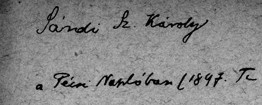 Sándi Sz. Károly
a Pécsi Naplóban (1897.